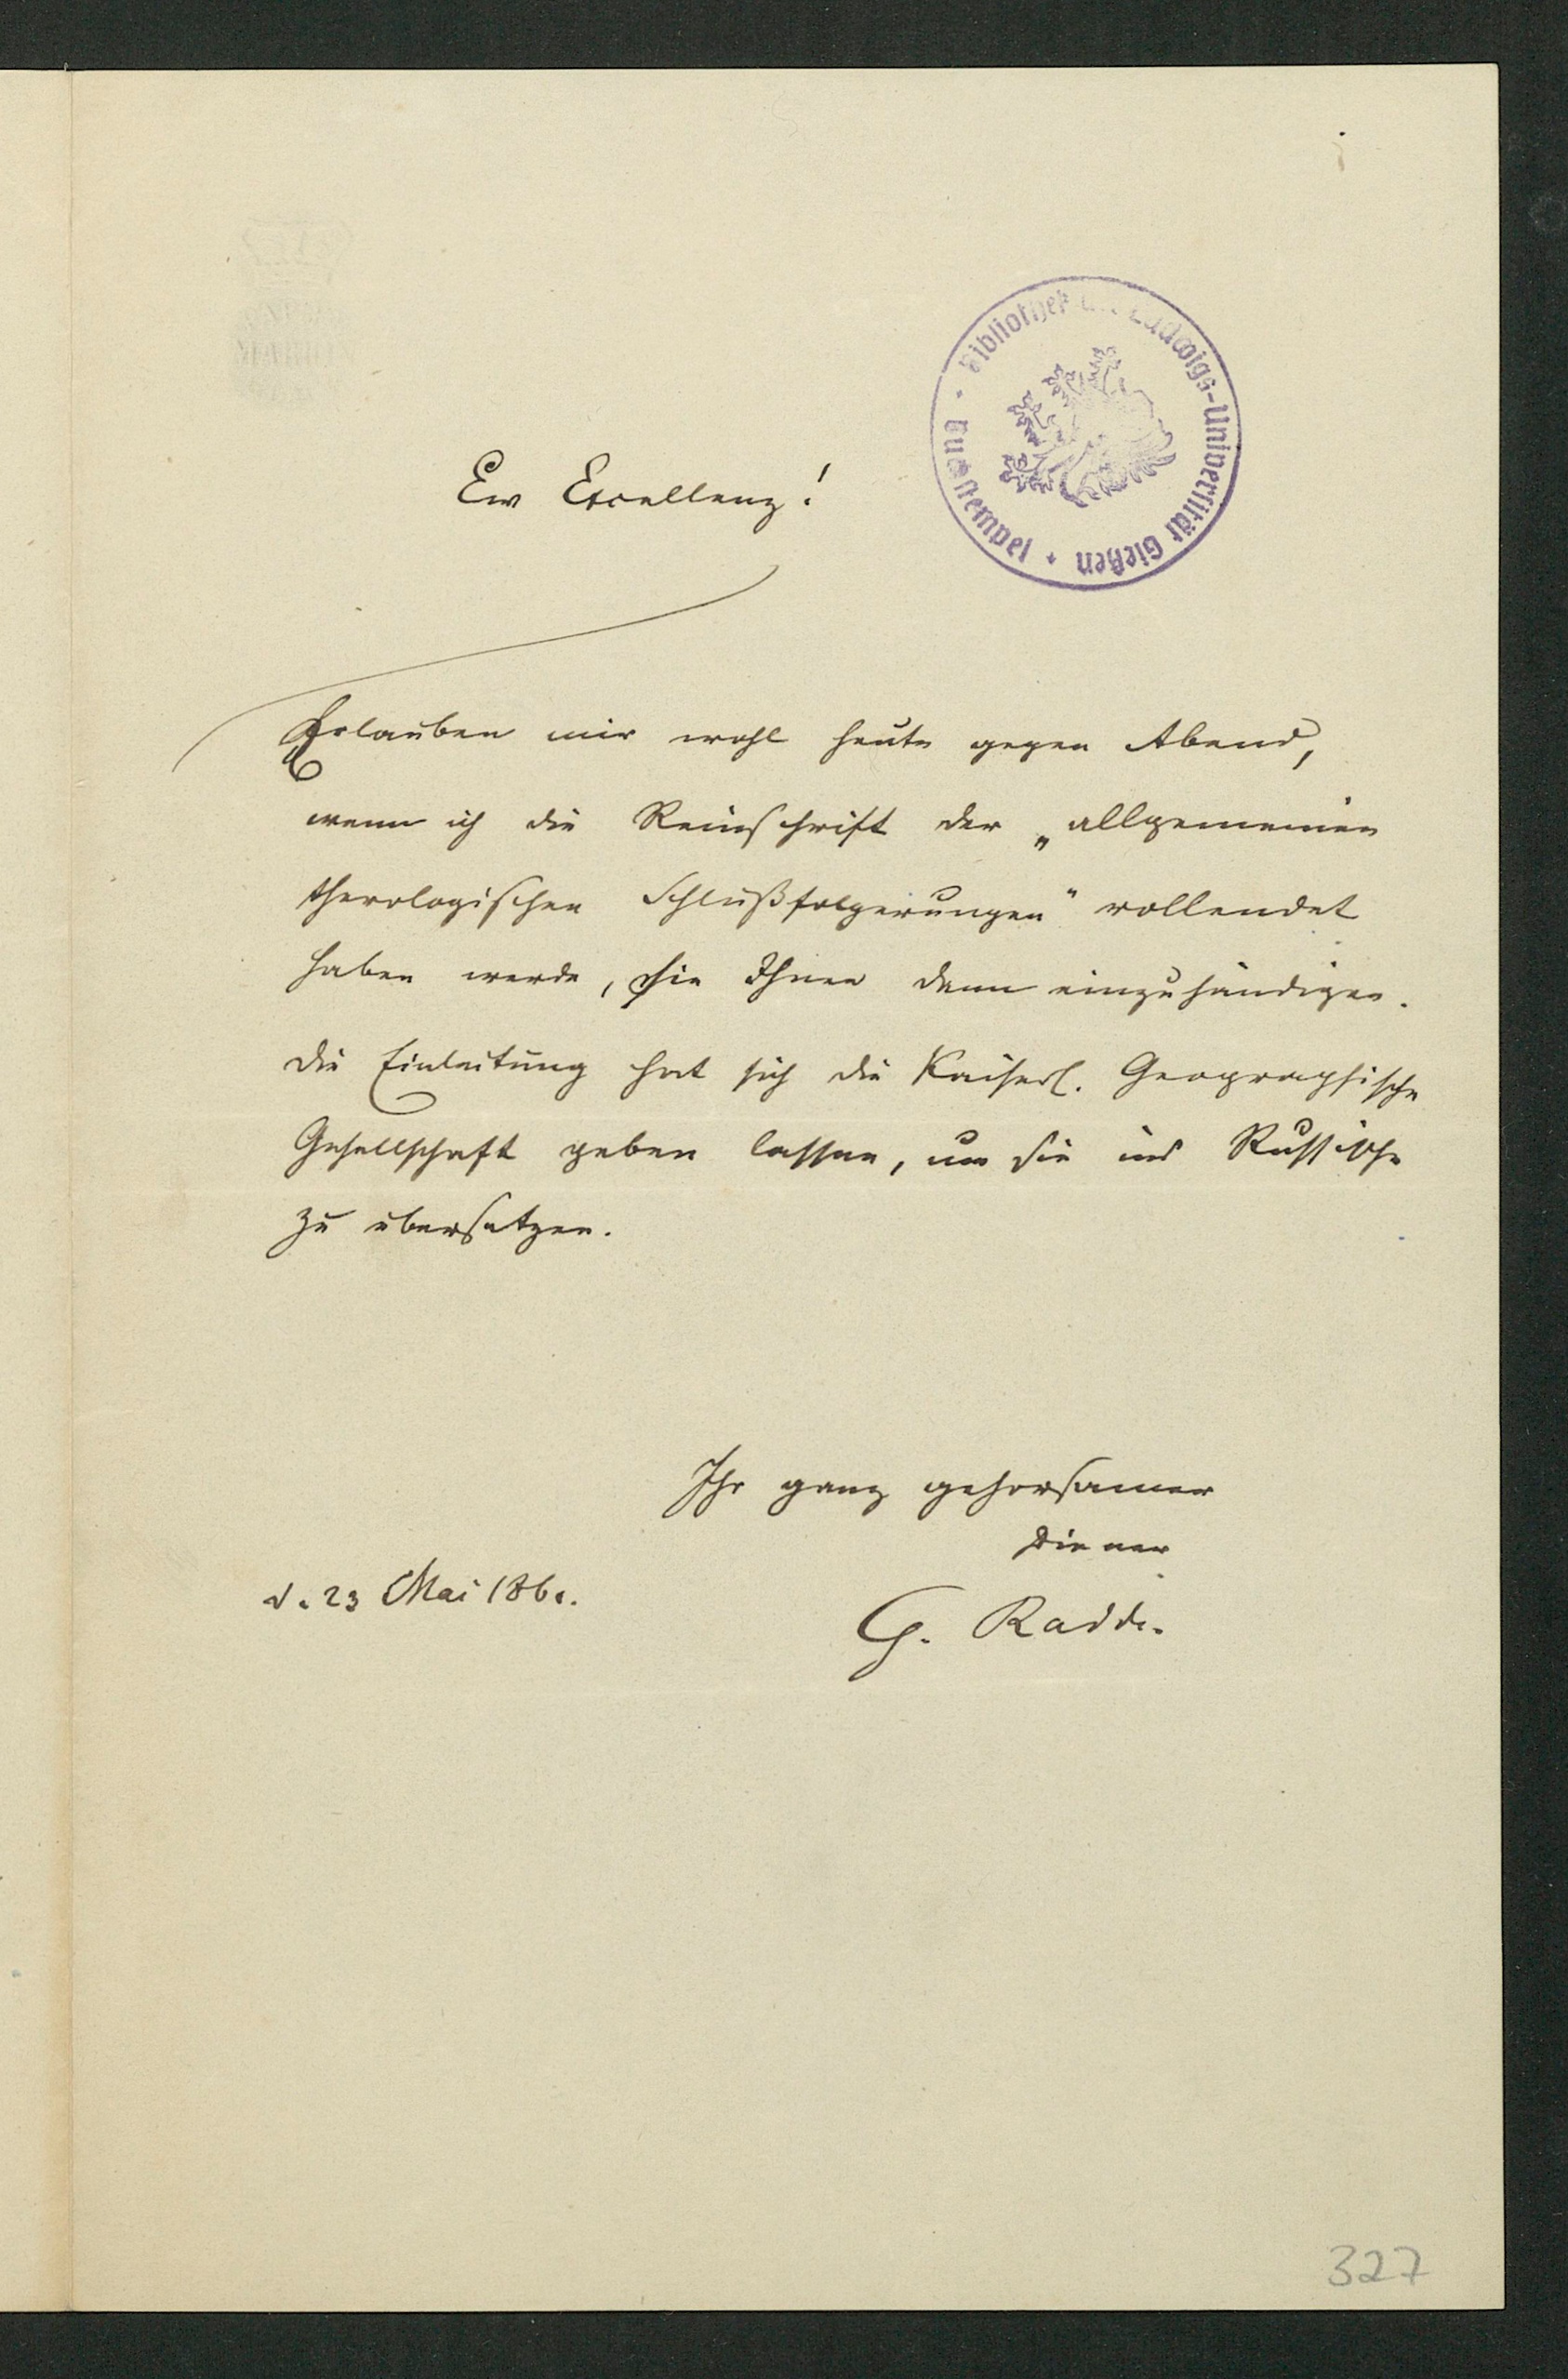 Bibliothek der Ludwigs-Universität Gießen
Buchstempel
Ew Excellenz!
Erlauben mir wohl heute gegen Abend,
wenn ich die Reinschrift der „allgemeinen
therologischen Schlußfolgerungen" vollendet
haben werde, sie Ihnen dann einzuhändigen.
Die Einleitung hat sich die Kaiserl. Geographische
Gesellschaft geben lassen, um sie ins Russische
zu übersetzen.
Ihr ganz gehorsamer
Diener
d. 23 Mai
G. Radde.
327